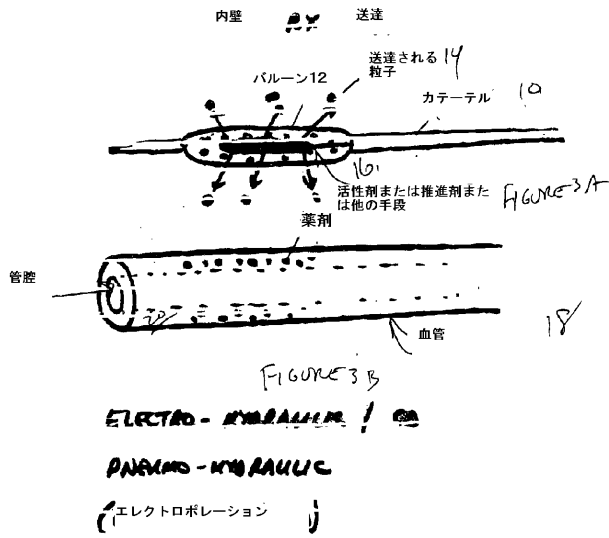 内壁 RX 送達
送達される粒子 14
バルーン12
カテーテル 10
16
活性剤または推進剤または他の手段
FIGURE 3A
薬剤
管腔
20
血管
18
FIGURE 3B
ELECTRO-HYDRAULIC /
PNEUMO-HYDRAULIC
(エレクトロポレーション)